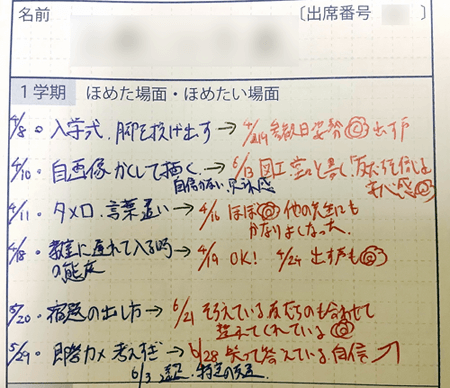 名前 〔出席番号 〕
1学期 ほめた場面・ほめたい場面
4/8 入学式、脚を投げ出す→4/19 参観日 姿勢◎ 出す戸
4/10 自画像 かくして描く→6/13 図工、堂々と書く、友だち
自信のない
4/11 タメ口、言葉遣い→4/16 ほぼ◎ 他の先生にも
かなりよくなった
4/18 教室に遅れて入る時→4/19 OK! 4/24 出す声も◎
の態度
5/20 宿題の出し方→6/21 そろえている 友だちのも合わせて
整えてくれている◎
5/29 即答ダメ 考えすぎ→6/28 笑って答えている、自信
6/3